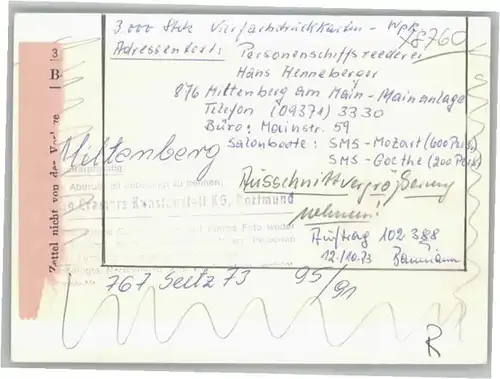 3000 Stck Vierfachdruckkarten - WpR
8760
Adressentext: Personenschiffsreederei
Hans Henneberger
876 Miltenberg am Main - Mainanlage
Telefon (09371) 3330
Büro: Mainstr. 59
Salonboote: SMS-Mozart (600 Pers.)
SMS-Goethe (200 Pers.)
Miltenberg
Ausschnittvergrößerung
nehmen!
Cramers Kunstanstalt KG, Dortmund
Auftrag 102 388
12./10.73 Baumann
767 Seitz 73 95/91
R
3
B
Zettel nicht von der Vorlage